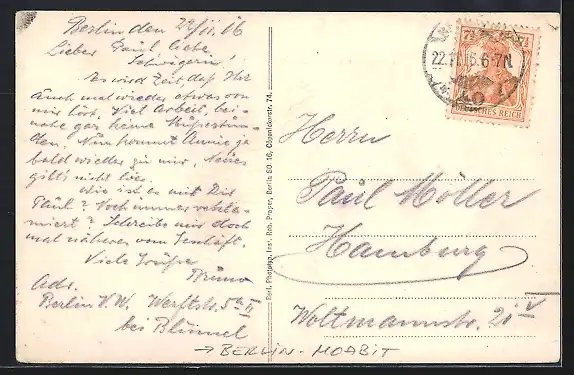 Berlin den 22/11.16
Lieber Paul, liebe
Schwägerin!
Es wird Zeit daß Ihr
auch mal wieder etwas von
mir hört. Viel Arbeit, bei-
nahe gar keine
Nun kommt Annie ja
bald wieder zu mir, Neues
gibt's nicht los.
Wie ist es mit Dir
Paul? Noch immer rekla-
miert? Schreibe mir doch
mal näheres vom Geschäft.
Viele Grüße
Bruno
Adr.
Berlin N.W. Werftstr. 5a II
bei Blümel
→ BERLIN-MOABIT
Berl. Photogr. Inst. Rob. Prager, Berlin SO 16, Cöpenickerstr. 74.
7½ 7½
DEUTSCHES REICH
22.11.16.6-7N.
Herrn
Paul Möller
Hamburg
Woltmannstr. 21 V